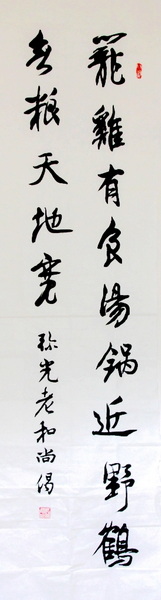 籠雞有食湯鍋近野鶴
無糧天地寬
弥光老和尚偈